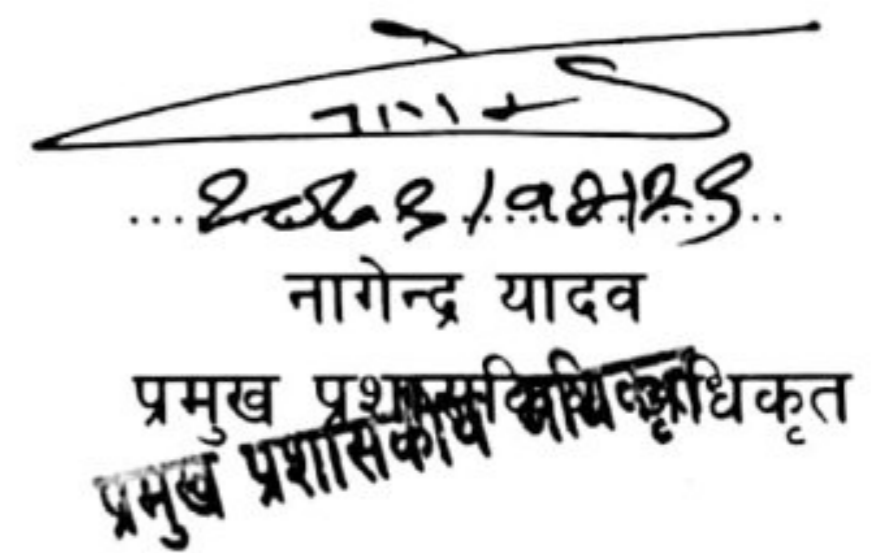 नागेन्द्र यादव
प्रमुख प्रशासकीय अधिकृत
प्रमुख प्रशासकीय अधिकृत